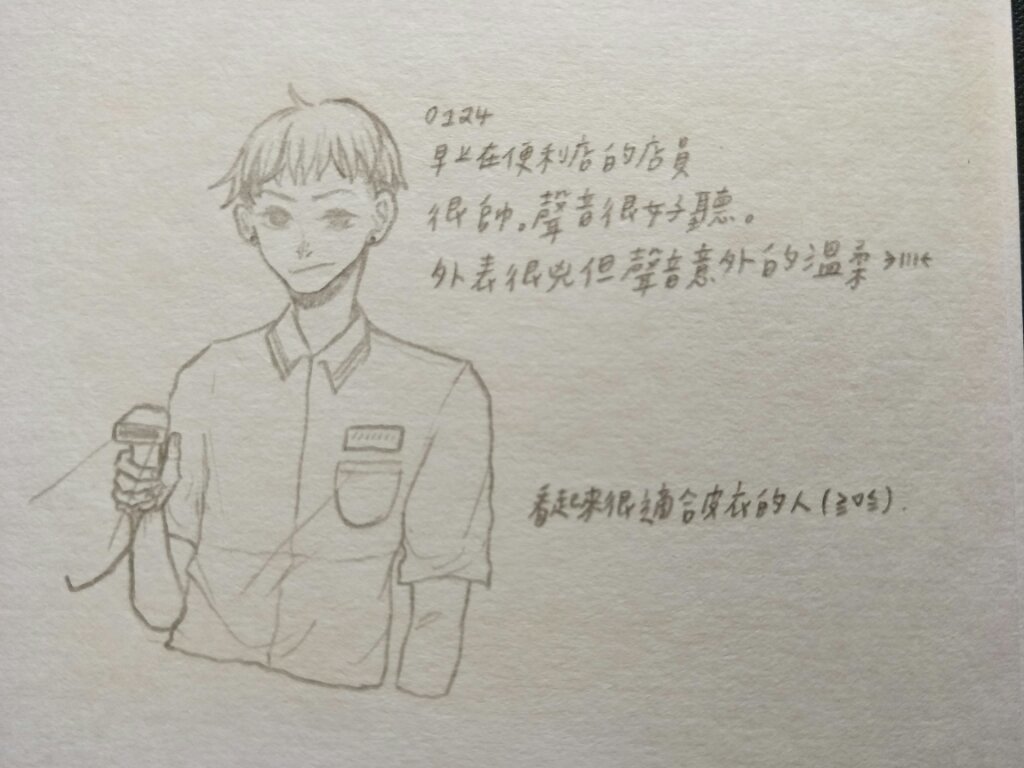 0124
早上在便利店的店員
很帥。聲音很好聽。
外表很兇但聲音意外的溫柔
看起來很適合皮衣的人(≧口≦).